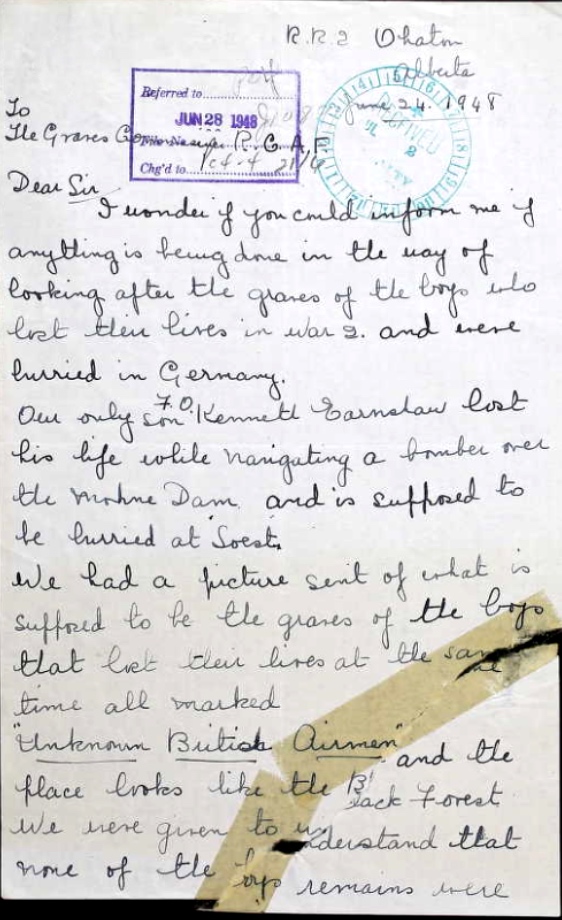 R.R.2 Ohaton
Alberta
June 24. 1948
Referred to
JUN 28 1948
Chg'd to
To
The Graves R.C.A.F
RECEIVED
Dear Sir
I wonder if you could inform me if
anything is being done in the way of
looking after the graves of the boys who
lost their lives in war 2. and were
burried in Germany.
Our only son F.O. Kenneth Earnshaw lost
his life while navigating a bomber over
the Mohne Dam and is supposed to
be burried at Soest.
We had a picture sent of what is
supposed to be the graves of the boys
that lost their lives at the same
time all marked
"Unknown British Airmen" and the
place looks like the Black Forest
We were given to understand that
none of the boys remains were